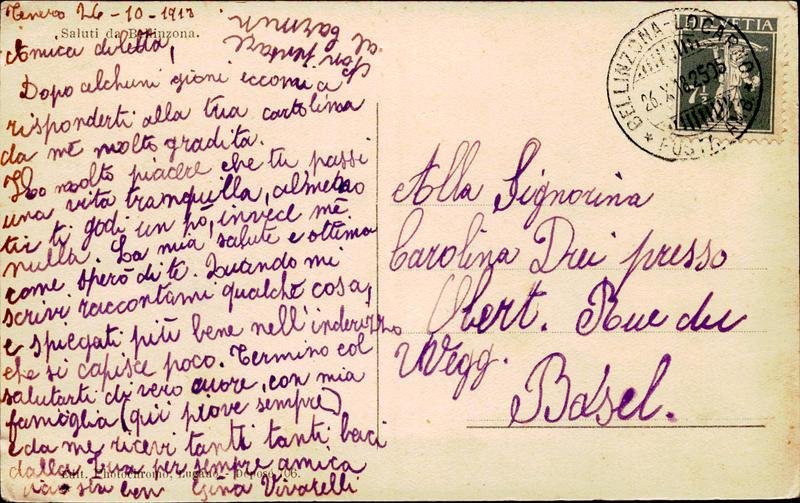 Tenero 26-10-1918
Saluti da Bellinzona.
Amica diletta,
Dopo alchuni giorni eccomi a
risponderti alla tua cartolina
da mè molto gradita.
Ho molto piacere che tu passi
una vita tranquilla, almeno
tu ti godi un pò, invece mè
nulla. La mia salute e ottima
come sperò di te. Quando mi
scrivi raccontami qualche cosa,
e spiegati più bene nell'inderizzo
che si capisce poco. Termino col
salutarti di vero cuore, con mia
famoglia (qui piove sempre)
e da me ricevi tanti tanti baci
dalla tua per sempre amica
ciao sta ben Gina Vivarelli
Edit. Photochromo, Lugano - Déposé 106.
HELVETIA
7½
BELLINZONA-LOCARNO
26.X.18.
Alla Signorina
Carolina Drei presso
Obert. Rue du
Wegg.
Basel.